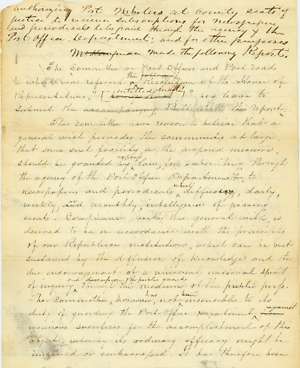 authorizing Post Masters at County seats of
justice to receive subscriptions for newspapers
and periodicals to be paid through the agency of the
Post Office Department and for other purposes
Mr made the following Report:
The Committee on Post Offices and Post Roads
to whom was referred the of the House of
Representatives, "entitled an act" beg leave to
submit the accompanying Bill the Report,
The Committee have reason to believe that a
general wish pervades the community at large
that some such facility as the proposed measure,
should be granted by law, for subscribing through
the agency of the Post Office Department to
newspapers and periodicals, diffusing daily,
weekly and monthly intelligence of passing
events. Compliance with this general wish is
deemed to be in accordance with the principle
of our Republican institutions, which can be but
sustained by the diffusion of knowledge and the
due encouragement of a universal national spirit
of inquiry through the medium of the public press.
The Committee, however, not insensible to its
duty of guarding the Post Office Department against
sacrifices for the accomplishment of this
object, its ordinary efficacy might be
impaired or embarrassed. It has therefore been